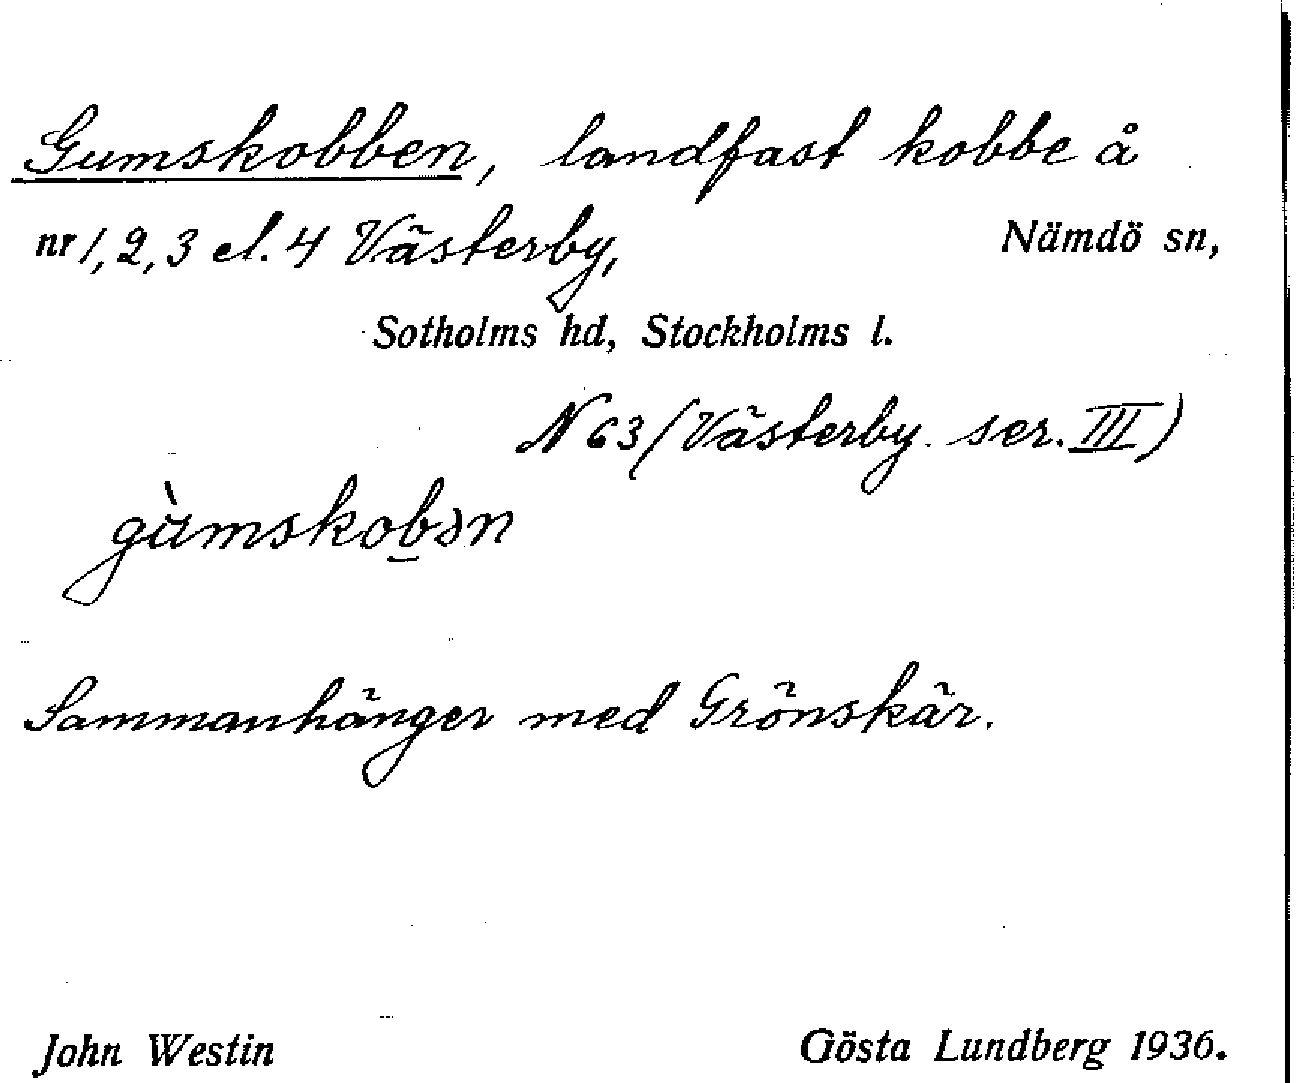 Gumskobben, landfast kobbe å
nr 1, 2, 3 el. 4 Västerby, Nämdö sn,
Sotholms hd, Stockholms l.
N 63 (Västerby. ser. III)
gùmskob̲ən
Sammanhänger med Grönskär.
John Westin Gösta Lundberg 1936.